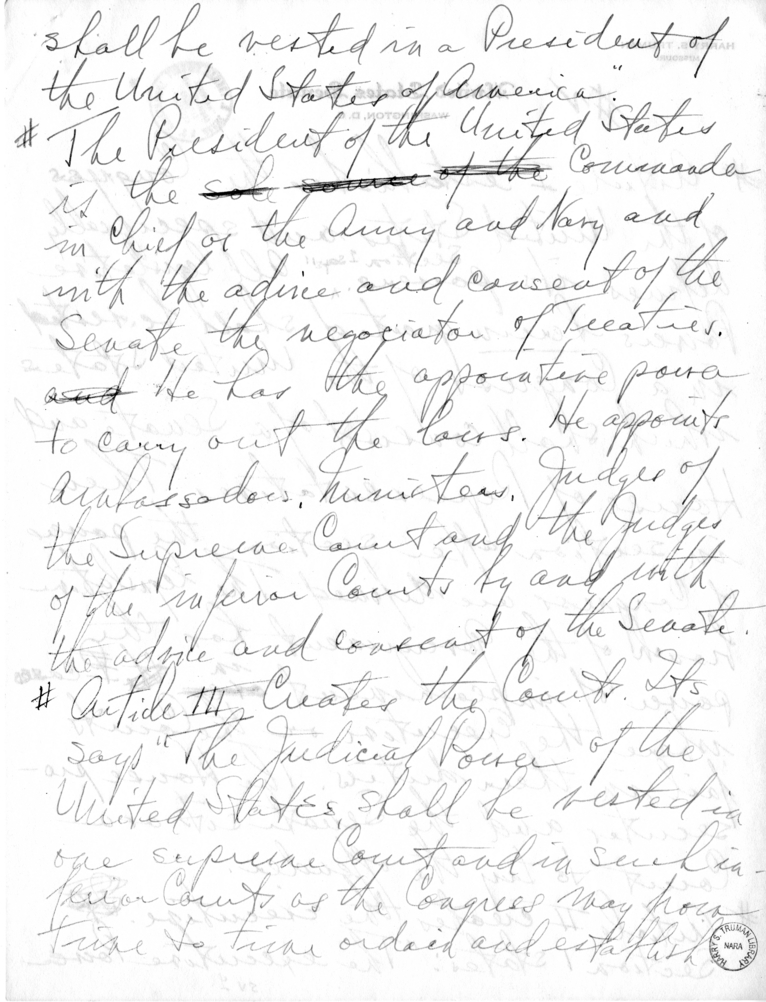 shall be vested in a President of
the United States of America".
# The President of the United States
is the sole source of the Commander
in Chief of the Army and Navy and
with the advice and consent of the
Senate the negociator of Treaties.
and He has the appointive power
to carry out the laws. He appoints
Ambassadors, Ministers, Judges of
the Supreme Court and the Judges
of the inferior Courts by and with
the advice and consent of the Senate.
# Article III Creates the Courts. Its
says "The Judicial Power of the
United States, shall be vested in
one supreme Court and in such in-
ferior Courts as the Congress may from
time to time ordain and establish
HARRY S. TRUMAN LIBRARY
NARA